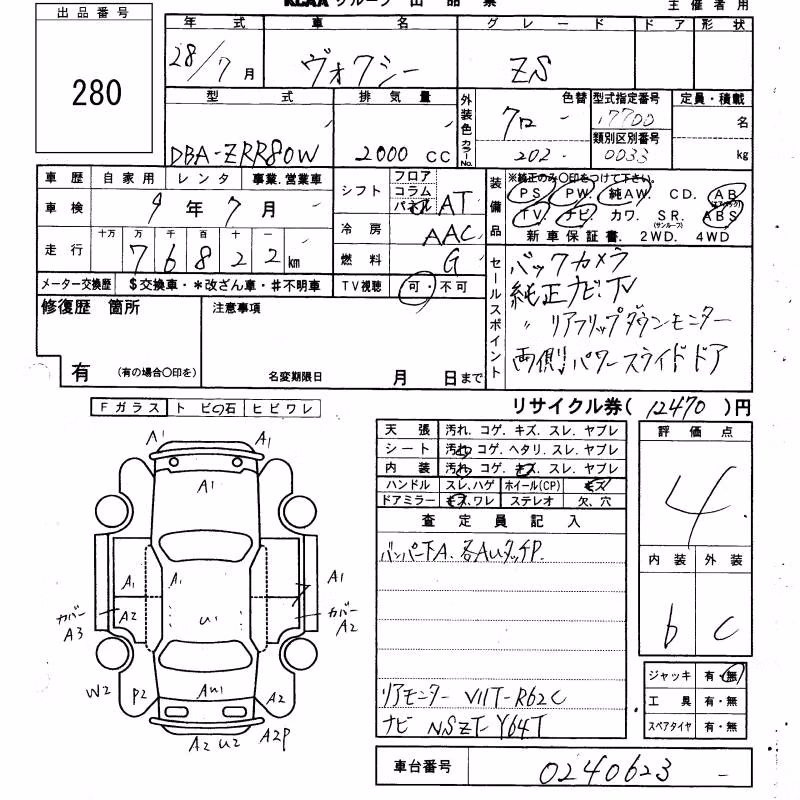 KCAA グループ 出 品 票
主 催 者 用
出 品 番 号
280
年 式 車 名 グ レ ー ド ド ア 形 状
28/7 月 ヴォクシー ZS
型 式 排 気 量 外装色 カラーNo. 色替 型式指定番号 定員・積載
クロ 17700 名
類別区別番号
DBA-ZRR80W 2000 CC 202 0033 kg
車 歴 自 家 用 レ ン タ 事業.営業車
シフト フロア コラム パネル AT
装備品 ※純正のみ〇印をつけて下さい。
PS PW. 純AW. CD. AB (エアバック)
TV. ナビ カワ. SR. (サンルーフ) ABS
新 車 保 証 書. 2WD. 4WD
車 検 9 年 7 月
冷 房 AAC
走 行 十万 万 千 百 十 一
7 6 8 2 2 km
燃 料 G
メーター交換歴 $交換車・*改ざん車・#不明車
TV視聴 可・不可
セールスポイント
バックカメラ
純正ナビ・TV
〃 リアフリップダウンモニター
両側パワースライドドア
修復歴 箇所
注意事項
有 (有の場合〇印を)
名変期限日 月 日まで
リサイクル券( 12470 )円
Fガラス ト ビ 石 ヒ ビ ワ レ
天 張 汚れ. コゲ. キズ. スレ. ヤブレ
シ ー ト 汚れ. コゲ. ヘタリ. スレ. ヤブレ
内 装 汚れ. コゲ. キズ. スレ. ヤブレ
ハンドル スレ、ハゲ ホイール(CP) キズ
ドアミラー キズ、ワレ ステレオ 欠、穴
査 定 員 記 入
バンパー下A. 各AUタッチP.
リアモニター V11T-R62C
ナビ NSZT-Y64T
評 価 点
4
内 装 外 装
6 C
ジャッキ 有・無
工 具 有・無
スペアタイヤ 有・無
車台番号 0240623
A1 A1
A1
A1 A1 A1
カバー A3 A2 U1 カバー A2
W2 P2 AU1 A2
A2 U2 A2P